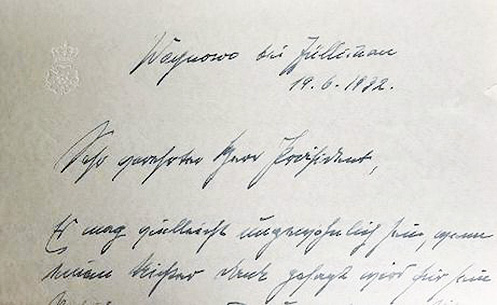 Wojnowo bei Züllichau
19.6.1932.
Sehr geehrter Herr Präsident,
Es mag vielleicht ungewöhnlich sein, wenn
einem Richter Dank gesagt wird für sein